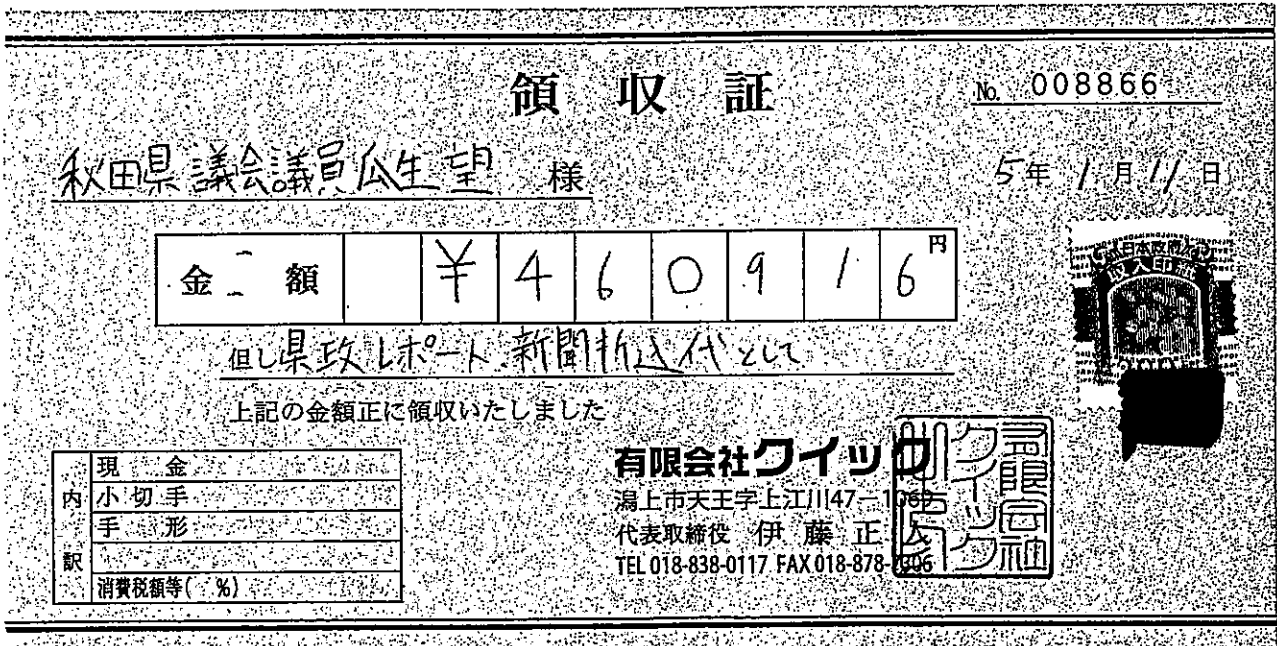 領収証
No. 008866
秋田県議会議員瓜生望 様
5年 1月 11日
金額 ¥460916円
但し県政レポート新聞折込代として
上記の金額正に領収いたしました
日本政府
収入印紙
内訳
現金
小切手
手形
消費税額等( %)
有限会社クイック
潟上市天王字上江川47-1069
代表取締役 伊藤正人
TEL 018-838-0117 FAX 018-878-
有限会社クイック